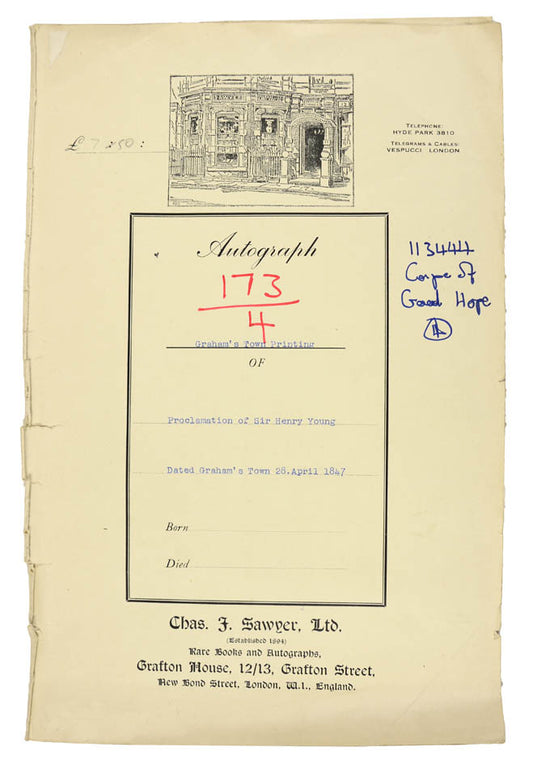 TELEPHONE:
HYDE PARK 3810
TELEGRAMS & CABLES:
VESPUCCI LONDON
£ 7 : 50 :
Autograph
173
4
Graham's Town Printing
OF
Proclamation of Sir Henry Young
Dated Graham's Town 28.April 1847
Born
Died
113444
Cape of
Good Hope
Chas. J. Sawyer, Ltd.
(Established 1894)
Rare Books and Autographs,
Grafton House, 12/13, Grafton Street,
New Bond Street, London, W.1., England.